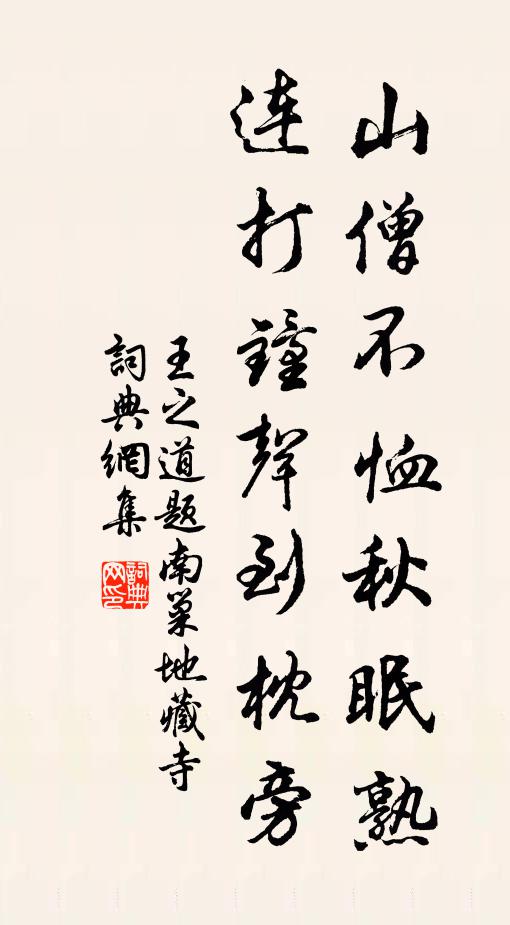 山僧不恤秋眠熟
連打鐘聲到枕旁
王之道題南巢地藏寺
詞典網集
詞典網印